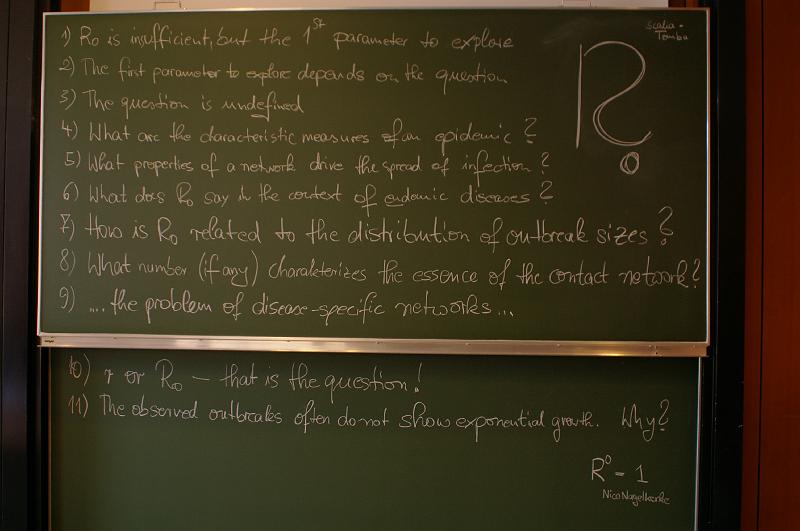 1) R₀ is insufficient, but the 1ˢᵗ parameter to explore
2) The first parameter to explore depends on the question
3) The question is undefined
4) What are the characteristic measures of an epidemic?
5) What properties of a network drive the spread of infection?
6) What does R₀ say in the context of endemic diseases?
7) How is R₀ related to the distribution of outbreak sizes?
8) What number (if any) charakterizes the essence of the contact network?
9) .... the problem of disease-specific networks...
Scalia-
Tomba
R₀
10) r or R₀ – that is the question!
11) The observed outbreaks often do not show exponential growth. Why?
R⁰ = 1
Nico Nagelkerke